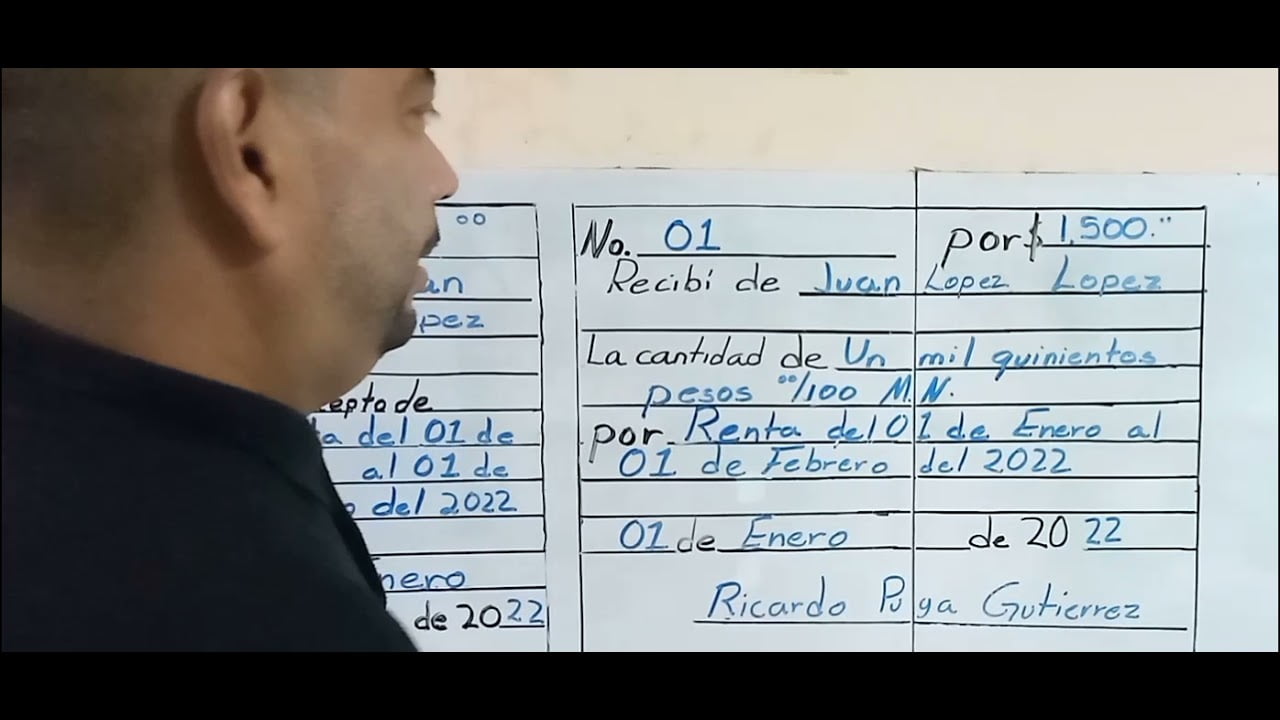 oo
an
pez
epto de
a del 01 de
al 01 de
o del 2022
nero
de 2022
No. 01 por $ 1,500.''
Recibí de Juan Lopez Lopez
La cantidad de Un mil quinientos
pesos °°/100 M.N.
por Renta del 01 de Enero al
01 de Febrero del 2022
01 de Enero de 2022
Ricardo Puga Gutierrez